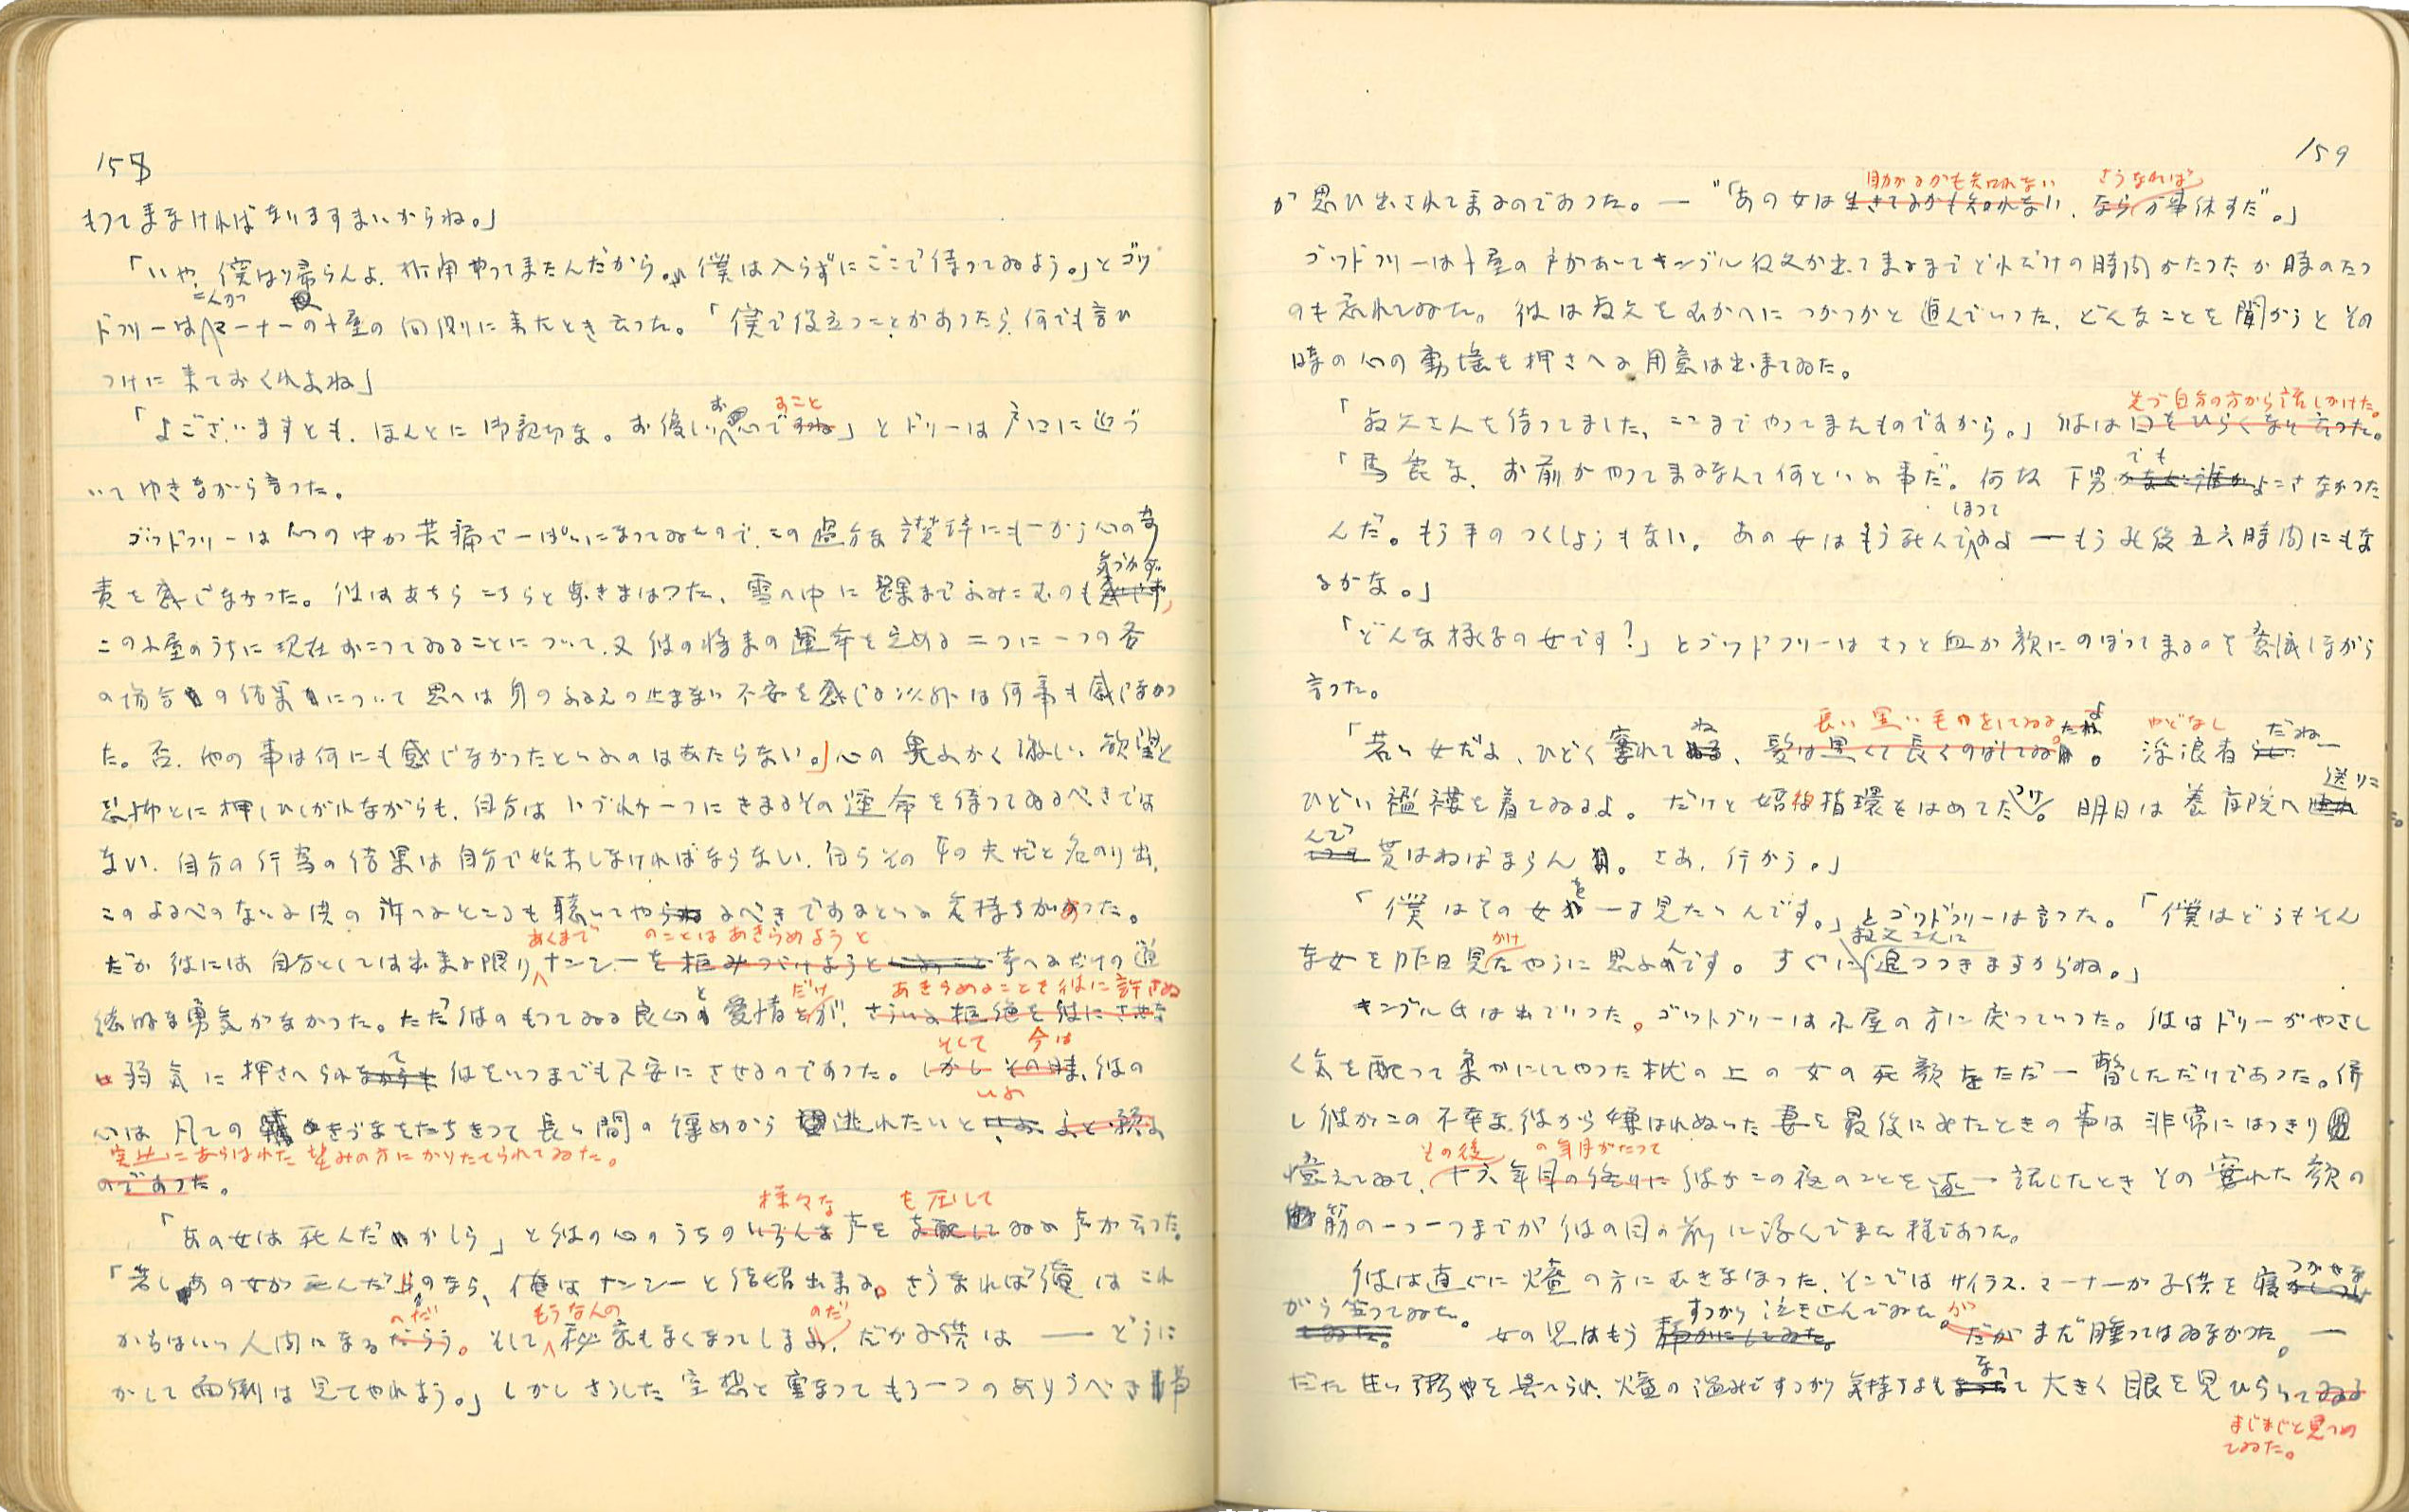 158
もつてまゐければなりますまいからね。」
「いや、僕は帰らんよ、折角やつてきたんだから。僕は入らずにここで待つてゐよう。」とゴツ
ドフリーはマーナーの小屋の向側に来たとき云つた。「僕で役立つことがあつたら、何でも言ひ
つけに来ておくれよね」
「よございますとも、ほんとに御親切な。お優しいお心ですこと」とドリーは戸口に近づ
いてゆきながら言つた。
ゴツドフリーは心の中が苦痛で一ぱいになつてゐたので、この過分な讃辞にも一かう心の苛
責を感じなかつた。彼はあちらこちらと歩きまはつた、雪の中に踝までふみこむのも気づかず、
この小屋のうちに現在おこつてゐることについて、又彼の将来の運命を定める二つに一つの各
の場合の結果について思へば身のふるへの止まない不安を感じる以外は何事も感じなかつ
た。否、他の事は何にも感じなかつたといふのはあたらない。心の奥ふかく激しい欲望と
恐怖とに押しひしがれながらも、自分はいづれか一つにきまるその運命を待つてゐるべきでは
ない、自分の行為の結果は自分で始末しなければならない、自らその女の夫だと名のり出、
このよるべのない子供の訴へるところも聴いてやるべきであるといふ気持ちがあつた。
だが彼には自分としては出来る限りあくまでナンシーのことはあきらめようと考へるだけの道
徳的な勇気がなかつた。ただ彼のもつてゐる良心と愛情だけが、あきらめることを彼に許さぬ
弱気に押さへられて彼をいつまでも不安にさせるのであつた。そして今は、彼の
心は凡てのきづなをたちきつて長い間の縛めから逃れたいといふ
突然にあらはれた望みの方にかりたてられてゐた。
「あの女は死んだかしら」と彼の心のうちの様々な声を圧してゐる声が云つた。
「若しあの女が死んだのなら、俺はナンシーと結婚出来る。さうなれば俺はこれ
からはいい人間になるのだ。そしてもうなんの秘密もなくなつてしまふのだ。だが子供は ── どうに
かして面倒は見てやれよう。」しかしさうした空想と重なつてもう一つのありうべき事
159
が思ひ出されて来るのであつた。―「あの女は助かるかも知れない、さうなれば万事休すだ。」
ゴツドフリーは小屋の戸があいてキンブル叔父が出てまゐるまでどれだけの時間がたつたか時のたつ
のも忘れてゐた。彼は叔父をむかへにつかつかと進んでいつた、どんなことを聞かうとその
時の心の動揺を押さへる用意は出来てゐた。
「叔父さんを待つてました、ここまでやつてきたものですから。」彼は先づ自分の方から話しかけた。
「馬鹿な、お前がやつてまゐるなんて何といふ事だ。何故下男でもよこさなかつた
んだ。もう手のつくしようもない。あの女はもう死んぢまつてゐるよ ── もう死後五六時間にもな
るかな。」
「どんな様子の女です？」とゴツドフリーはさつと血が顔にのぼつて来るのを意識しながら
言つた。
「若い女だよ、ひどく窶れてね、長い黒い毛をしてゐたよ。浮浪者だね―
ひどい襤褸を着てゐるよ。だけど結婚指環をはめてたつけ。明日は養育院へ送りこ
んで貰はねばならん。さあ、行かう。」
「僕はその女を一寸見たいんです。」とゴツドフリーは言つた。「僕はどうもそん
な女を昨日見かけたやうに思ふんです。すぐに叔父さんに追つつきますからね。」
キンブル氏は出ていつた。ゴツドフリーは小屋の方に戻つていつた。彼はドリーがやさし
く気を配つて柔かにしてやつた枕の上の女の死顔をただ一瞥しただけであつた。併
し彼がこの不幸な彼から嫌はれぬいた妻を最後にみたときの事は非常にはつきり
憶えてゐて、その後十六年の年月がたつて彼がこの夜のことを逐一話したときその窶れた顔の
筋の一つ一つまでが彼の目の前に浮んできた程であつた。
彼は直ぐに煖炉の方にむきなほつた、そこではサイラス・マーナーが子供を寝つかせな
がら坐つてゐた。女の児はもうすつかり泣き止んでゐたがまだ睡つてはゐなかつた。―
ただ甘い粥やを与へられ、煖炉の温みですつかり気持よくなつて大きく眼を見ひらいて
まじまじと見つめ
てゐた。